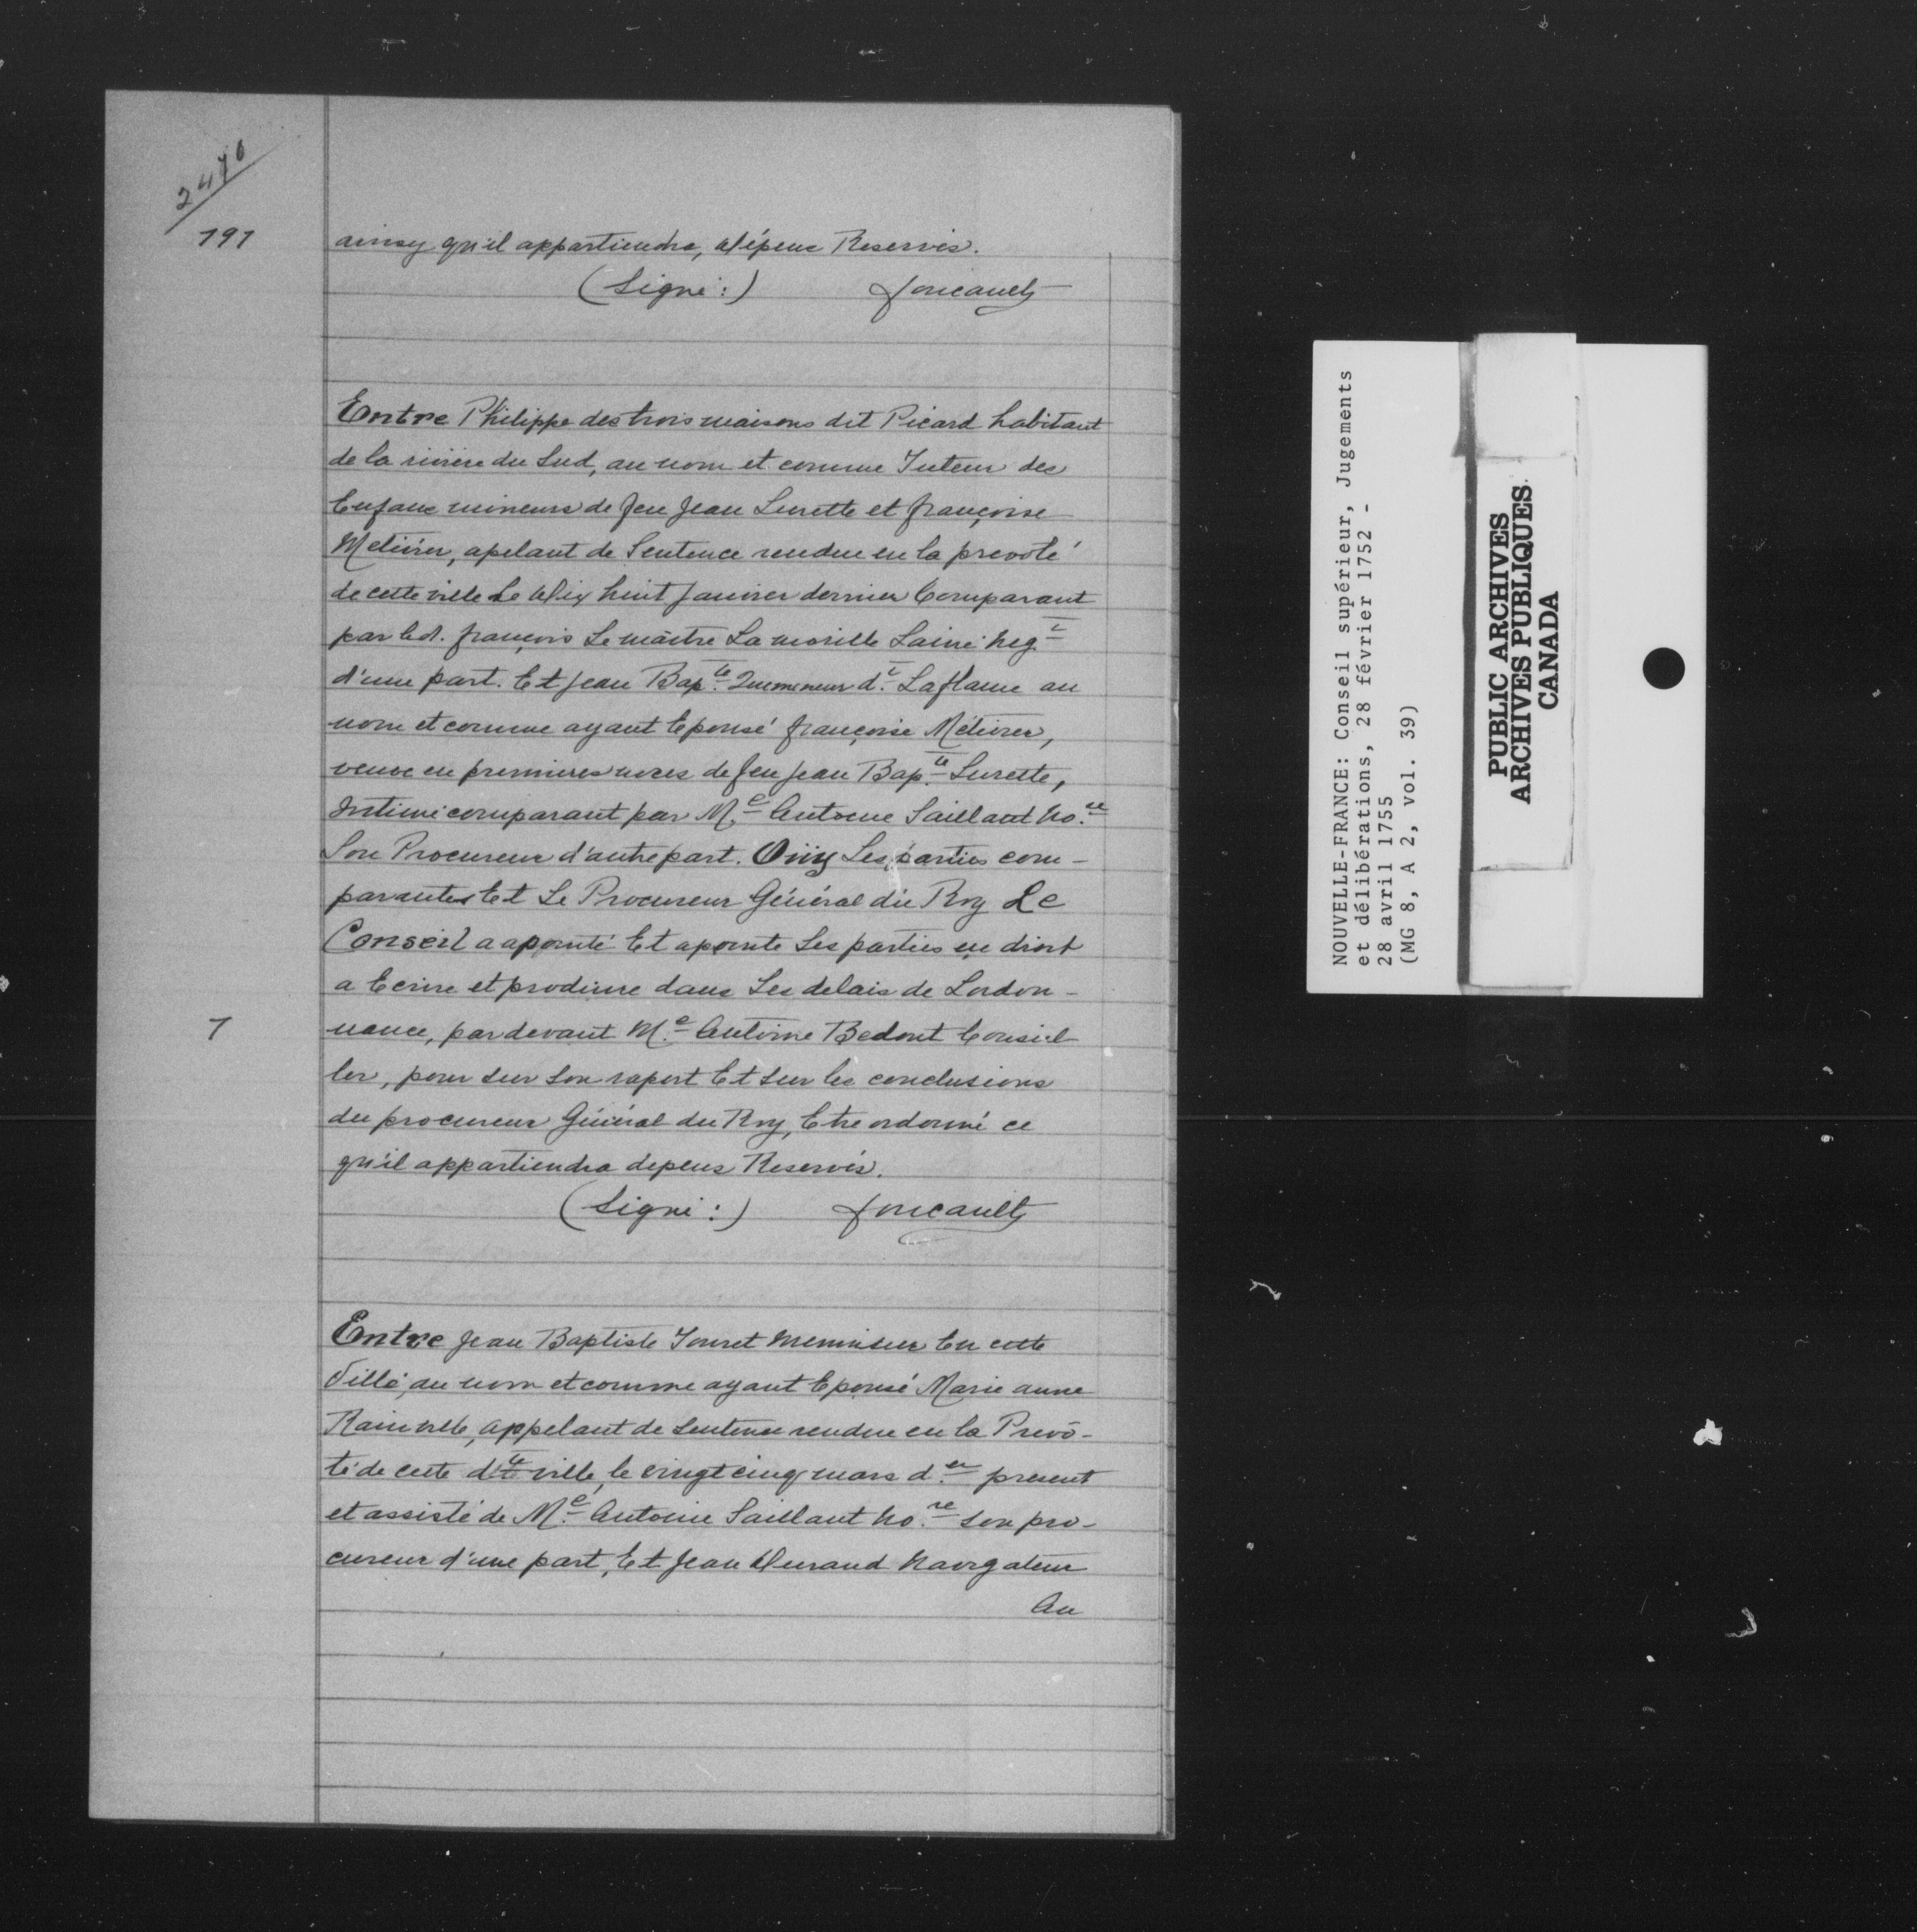 2470
191
ainsy qu'il appartiendra, dépens Reservés.
(Signé:) foucault
Entre Philippe des trois maisons dit Picard habitant
de la riviere du Sud, au nom et comme Tuteur des
Enfans mineurs de feu Jean Lurette et françoise
Metivier, apelant de Sentence rendue en la prevoté
de cette ville Le dix huit Janvier dernier Comparant
par led. françois Le maitre La morille Lainé neg.t
d'une part. Et Jean Bap.te Quemeneur d.t Laflame au
nom et comme ayant Epousé françoise Métivier,
veuve en premieres noces de feu Jean Bap.te Lurette,
Intimé comparant par M.e Antoine Saillant No.re
Son Procureur d'autre part. Oüiy Les parties com-
parantes Et Le Procureur Général du Roy Le
Conseil a apointé Et apointe Les parties en droit
a Ecrire et produire dans Les delais de Lordon-
7
nance, pardevant M.e Antoine Bedout Conseil-
ler, pour sur son raport Et sur les conclusions
du procureur Général du Roy, Etre ordonné ce
qu'il appartiendra depens Reservés.
(Signé:) foucault
Entre Jean Baptiste Touret Menuisier En cette
Ville, au nom et comme ayant Epousé Marie anne
Rainville, appelant de Sentence rendue en la Prevô-
té de cette d.te ville, le vingt cinq mars d.er present
et assisté de M.e Antoine Saillant No.re son pro-
cureur d'une part, Et Jean Durand Navigateur
Au
NOUVELLE-FRANCE: Conseil supérieur, Jugements
et délibérations, 28 février 1752 -
28 avril 1755
(MG 8, A 2, vol. 39)
PUBLIC ARCHIVES
ARCHIVES PUBLIQUES
CANADA